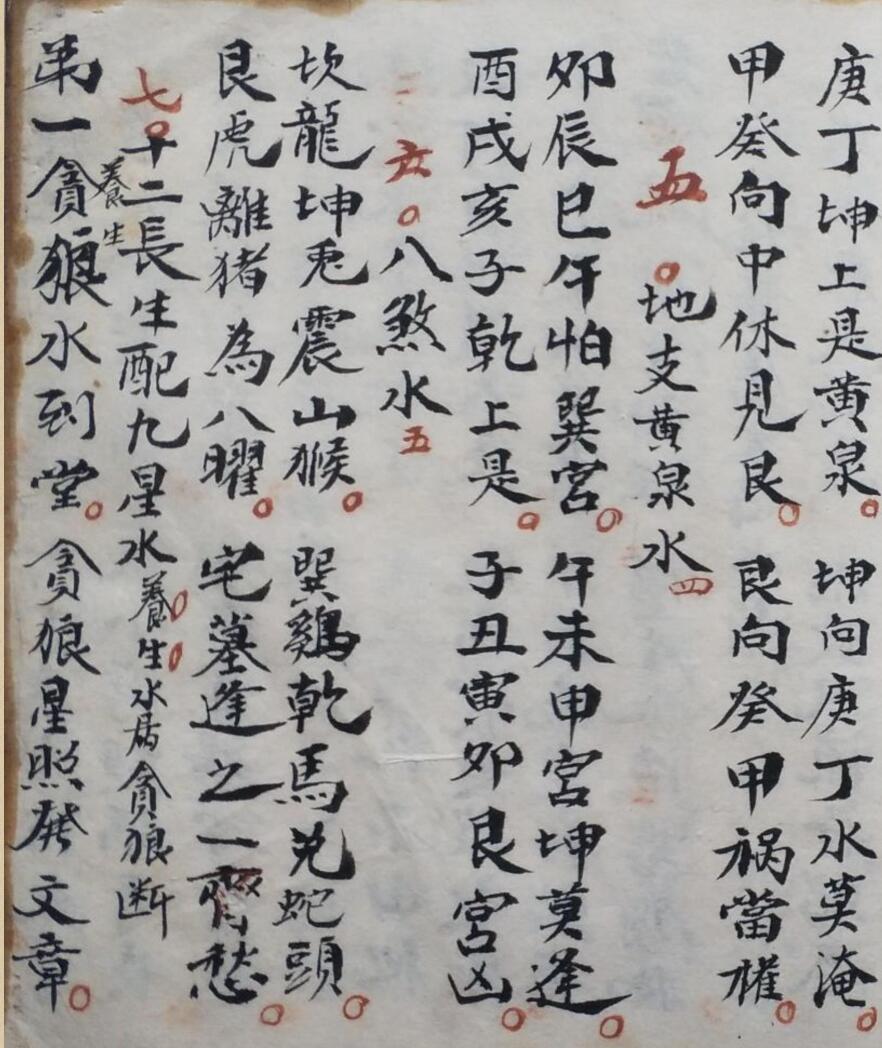 庚丁坤上是黄泉。坤向庚丁水莫淹。
甲癸向中休見艮。艮向癸甲祸當權。
五。地支黄泉水四
卯辰巳午怕巽宮。午未申宮坤莫逢。
酉戌亥子乾上是。子丑寅卯艮宮凶。
六。八煞水五
坎龍坤兎震山猴。巽鷄乾馬兌蛇頭。
艮虎離猪為八曜。宅墓逢之一齊愁。
七。十二長生配九星水養生水居貪狼断
養生
弟一貪狼水到堂。貪狼星照發文章。